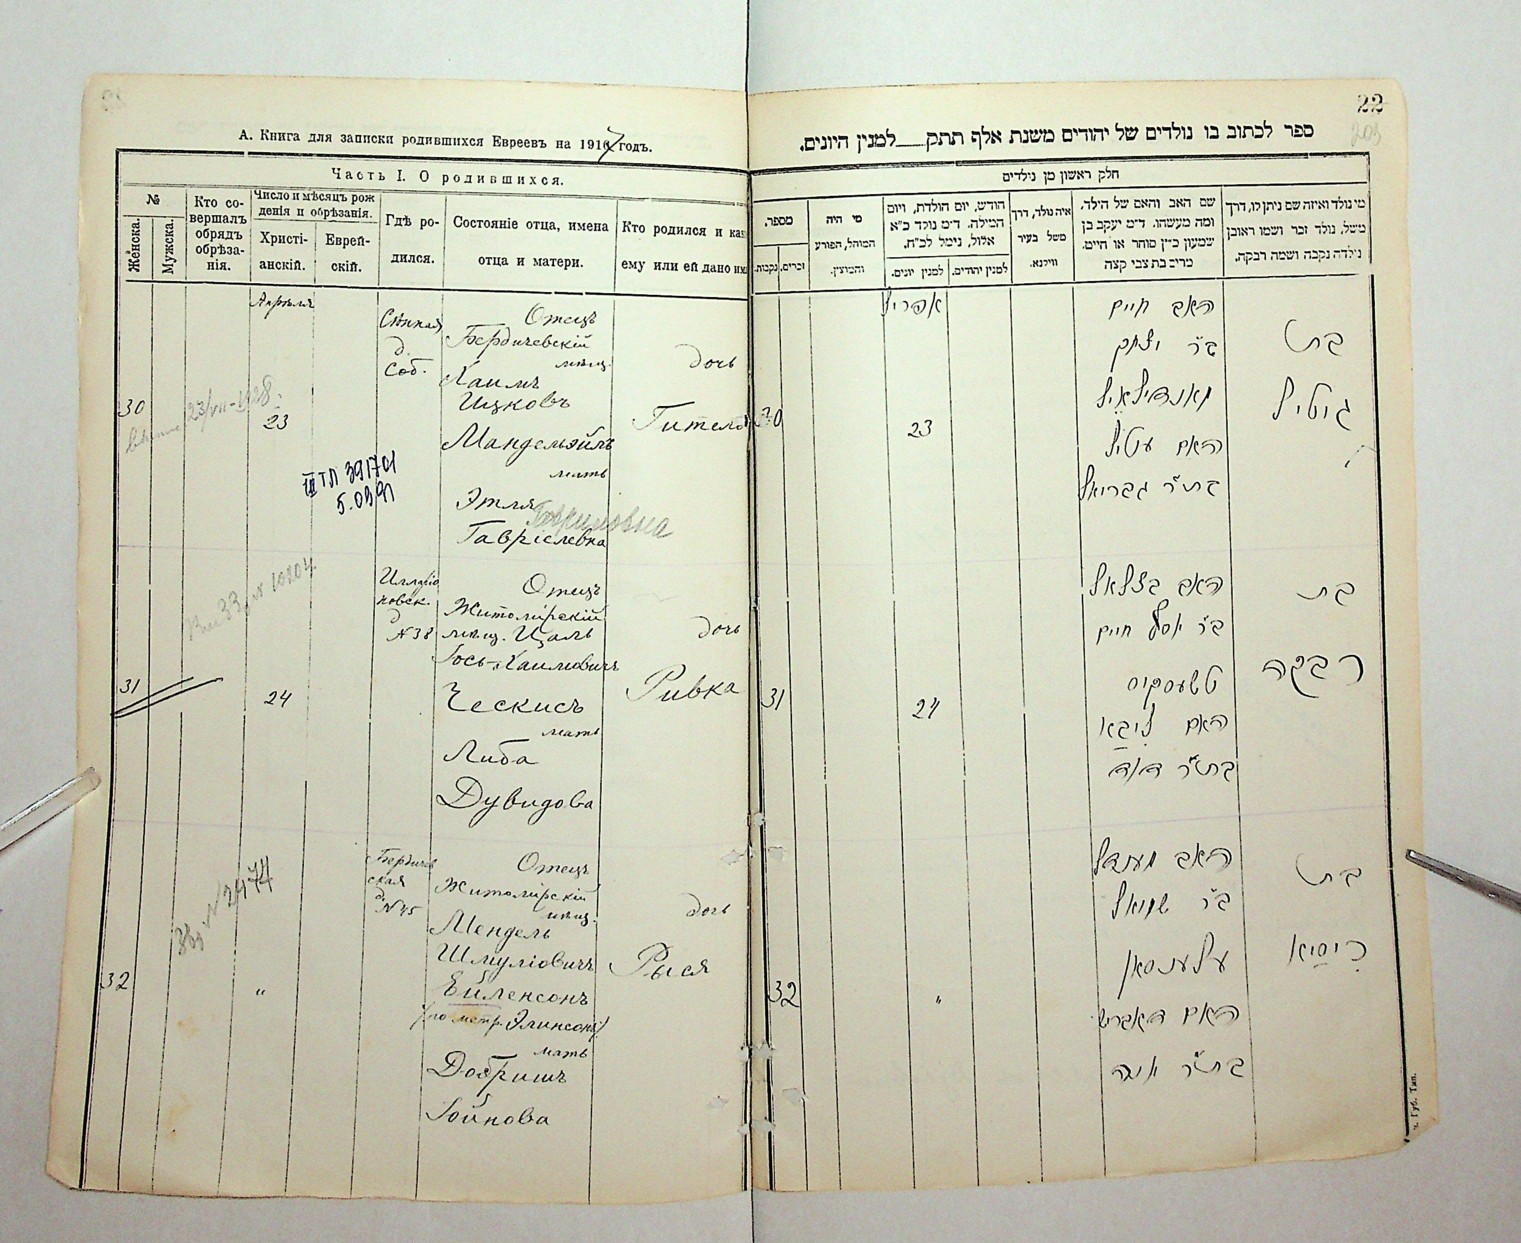 А. Книга для записки родившихся Евреевъ на 1917 годъ.
Часть I. О родившихся.
№
Женска.
Мужска.
Кто со-
вершалъ
обрядъ
обрѣза-
нія.
Число и мѣсяцъ рож
денія и обрѣзанія.
Христі-
анскій.
Еврей-
скій.
Гдѣ ро-
дился.
Состояніе отца, имена
отца и матери.
Кто родился и как
ему или ей дано им
Апрѣля
30
23/VII-1928.
23
III ТЛ 391701
5.03.91
Сѣнная
д.
Соб.
Отецъ
Бердичевскій
мѣщ.
Хаимъ
Ицковъ
Мандельэйлъ
мать
Этля
Гавриловна
Гавріелевна
дочь
Гитель
31
24
Илларіо
новск.
д
№38
Отецъ
Житомірскій
мѣщ. Цаль
Іось-Хаимовичъ
Ческисъ
мать
Либа
Дувидова
дочь
Ривка
32
"
№ 2474
Бердичев
ская
д.
№45
Отецъ
Житомірскій
мѣщ.
Мендель
Шмуліовичъ
Ейленсонъ
/по метр. Элинсонъ/
мать
Добришъ
Іойнова
дочь
Рыся
22
203
ספר לכתוב בו נולדים של יהודים משנת אלף תתק___למנין היונים.
חלק ראשון מן נולדים
מי נולד ואיזה שם ניתן לו, דרך
משל, נולד זכר ושמו ראובן
נילדה נקבה ושמה רבקה.
שם האב והאם של הילד.
ומה מעשהו. ד״מ יעקב בן
שמעון כ״ץ סוחר או חייט.
מרים בת צבי קצה
איה נולד, דרך
משל בעיר
ווילנא.
חודש, יום הולדת, ויום
המילה. ד״מ נולד כ״א
אלול, נימל לכ״ח.
למנין יהודים.
למנין יונים.
מי היה
המוהל, הפורע
והמוצץ.
מספר.
זכרים.
נקבות.
אפריל
30
23
האב חיים
ב״ר יצחק
מאנדילאיל
האם עטיל
בת״ר גבריאל
בת
גיטיל
31
24
האב בצלאל
ב״ר יוסף חיים
טשעסקיס
האם ליבא
בת״ר דוד
בת
רבקה
32
"
האב מענדל
ב״ר שמואל
עלענסאן
האם דאבריש
בת״ר יונה
בת
ריסיא
ч. Губ. Тип.